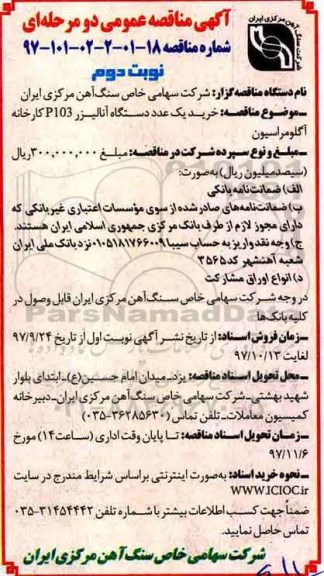 شرکت سنگ آهن مرکزی ایران
آگهی مناقصه عمومی دو مرحله‌ای
شماره مناقصه ۱۸-۰۱-۲-۰۲-۱۰۱-۹۷
نوبت دوم
نام دستگاه مناقصه‌گزار: شرکت سهامی خاص سنگ‌آهن مرکزی ایران
ـ موضوع مناقصه: خرید یک عدد دستگاه آنالیزر P103 کارخانه
آگلومراسیون
ـ مبلغ و نوع سپرده شرکت در مناقصه: مبلغ ۳۰۰,۰۰۰,۰۰۰ ریال
(سیصد میلیون ریال) به‌صورت:
الف) ضمانت‌نامه بانکی
ب) ضمانت‌نامه‌های صادر شده از سوی مؤسسات اعتباری غیربانکی که
دارای مجوز لازم از طرف بانک مرکزی جمهوری اسلامی ایران هستند.
ج) وجه نقد واریز به حساب سیبا ۰۱۰۵۱۸۱۷۶۶۰۰۹ نزد بانک ملی ایران
شعبه آهنشهر کد ۳۵۶۵
د) انواع اوراق مشارکت
در وجه شرکت سهامی خاص سنگ‌آهن مرکزی ایران قابل وصول در
کلیه بانک‌ها
ـ زمان فروش اسناد: از تاریخ نشر آگهی نوبت اول از تاریخ ۹۷/۹/۲۴
لغایت ۹۷/۱۰/۱۳
ـ محل تحویل اسناد مناقصه: یزد ـ میدان امام حسین(ع) ـ ابتدای بلوار
شهید بهشتی ـ شرکت سهامی خاص سنگ‌آهن مرکزی ایران ـ دبیرخانه
کمیسیون معاملات ـ تلفن تماس (۳۶۲۸۵۶۳۰-۰۳۵)
ـ زمان تحویل اسناد مناقصه: تا پایان وقت اداری (ساعت ۱۴) مورخ
۹۷/۱۱/۶
ـ نحوه خرید اسناد: به‌صورت اینترنتی براساس شرایط مندرج در سایت
WWW.ICIOC.ir
ضمناً جهت کسب اطلاعات بیشتر با شماره تلفن ۳۱۴۵۴۴۴۲-۰۳۵
تماس حاصل نمایید.
شرکت سهامی خاص سنگ‌آهن مرکزی ایران